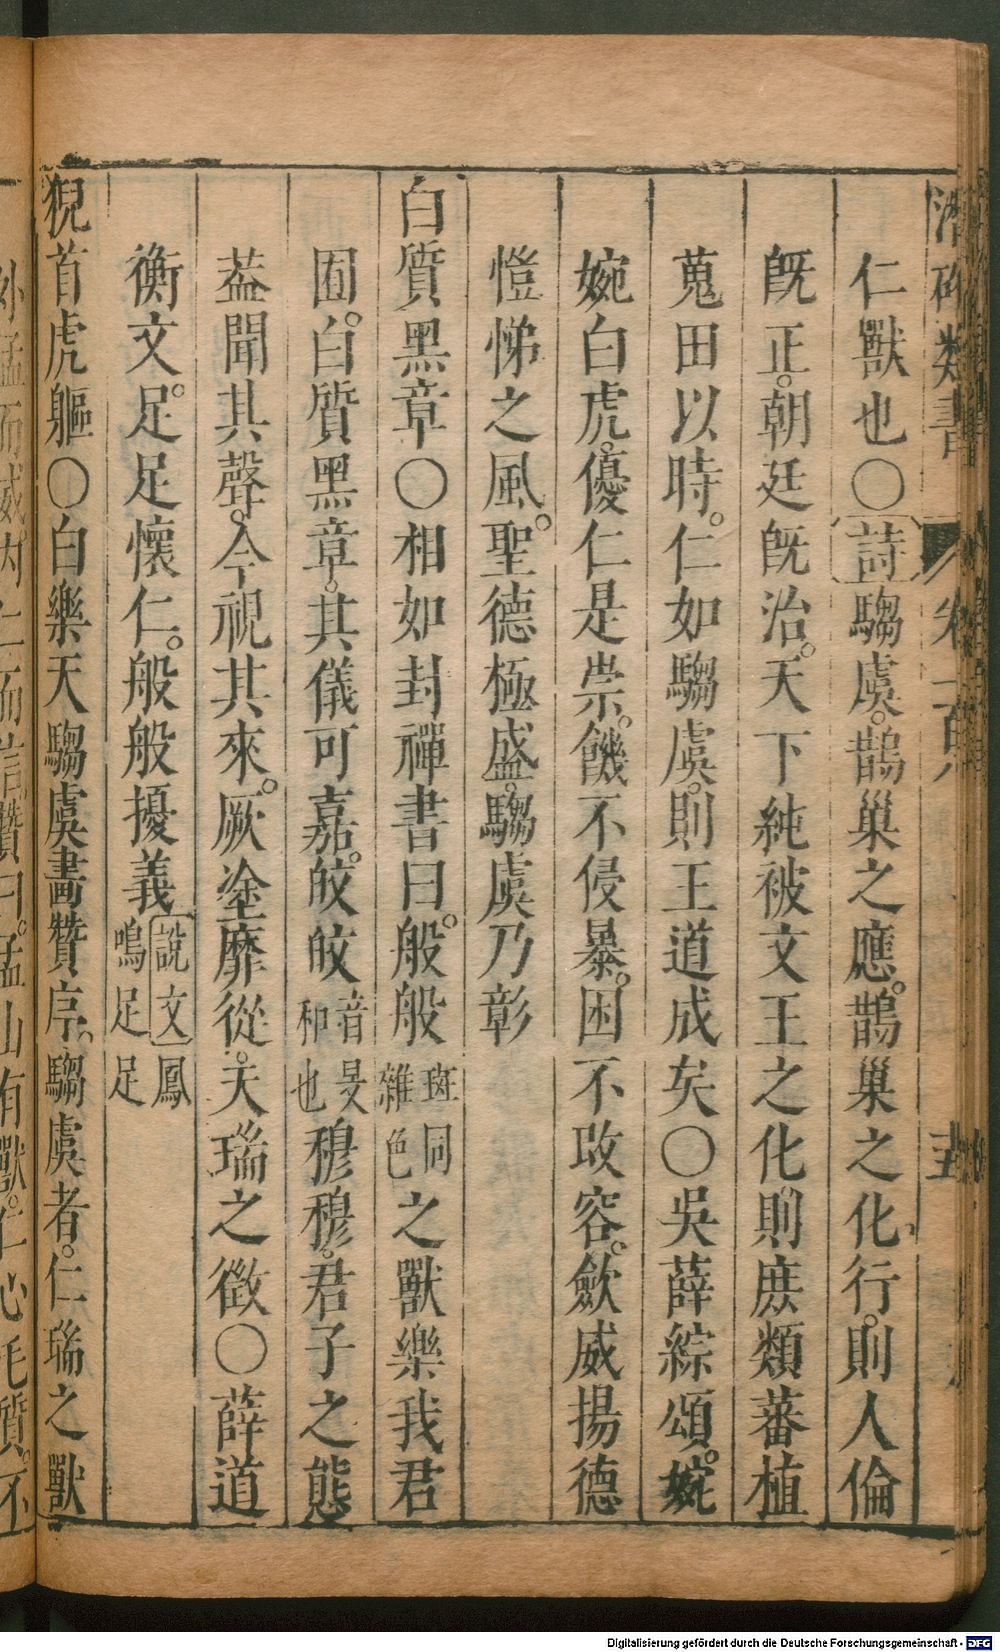 潛確類書 卷一百八 五
仁獸也〇詩騶虞。鵲巢之應。鵲巢之化行。則人倫
旣正。朝廷旣治。天下純被文王之化。則庶類蕃植
蒐田以時。仁如騶虞。則王道成矣〇吳薛綜頌。婉
婉白虎。優仁是崇。饑不侵暴。困不改容。歛威揚德
愷悌之風。聖德極盛。騶虞乃彰
白質黑章〇相如封禪書曰。般般斑同雜色之獸樂我君
囿。白質黑章。其儀可嘉。皎皎音旻和也穆穆。君子之態
葢聞其聲。今視其來。厥塗靡從。天瑞之徵〇薛道
衡文。足足懷仁。般般擾義說文鳳鳴足足
猊首虎軀〇白樂天騶虞畫贊序。騶虞者。仁瑞之獸
外猛而威。內仁而信贊曰。孟山有獸。仁心毛質。不
Digitalisierung gefördert durch die Deutsche Forschungsgemeinschaft - DFG